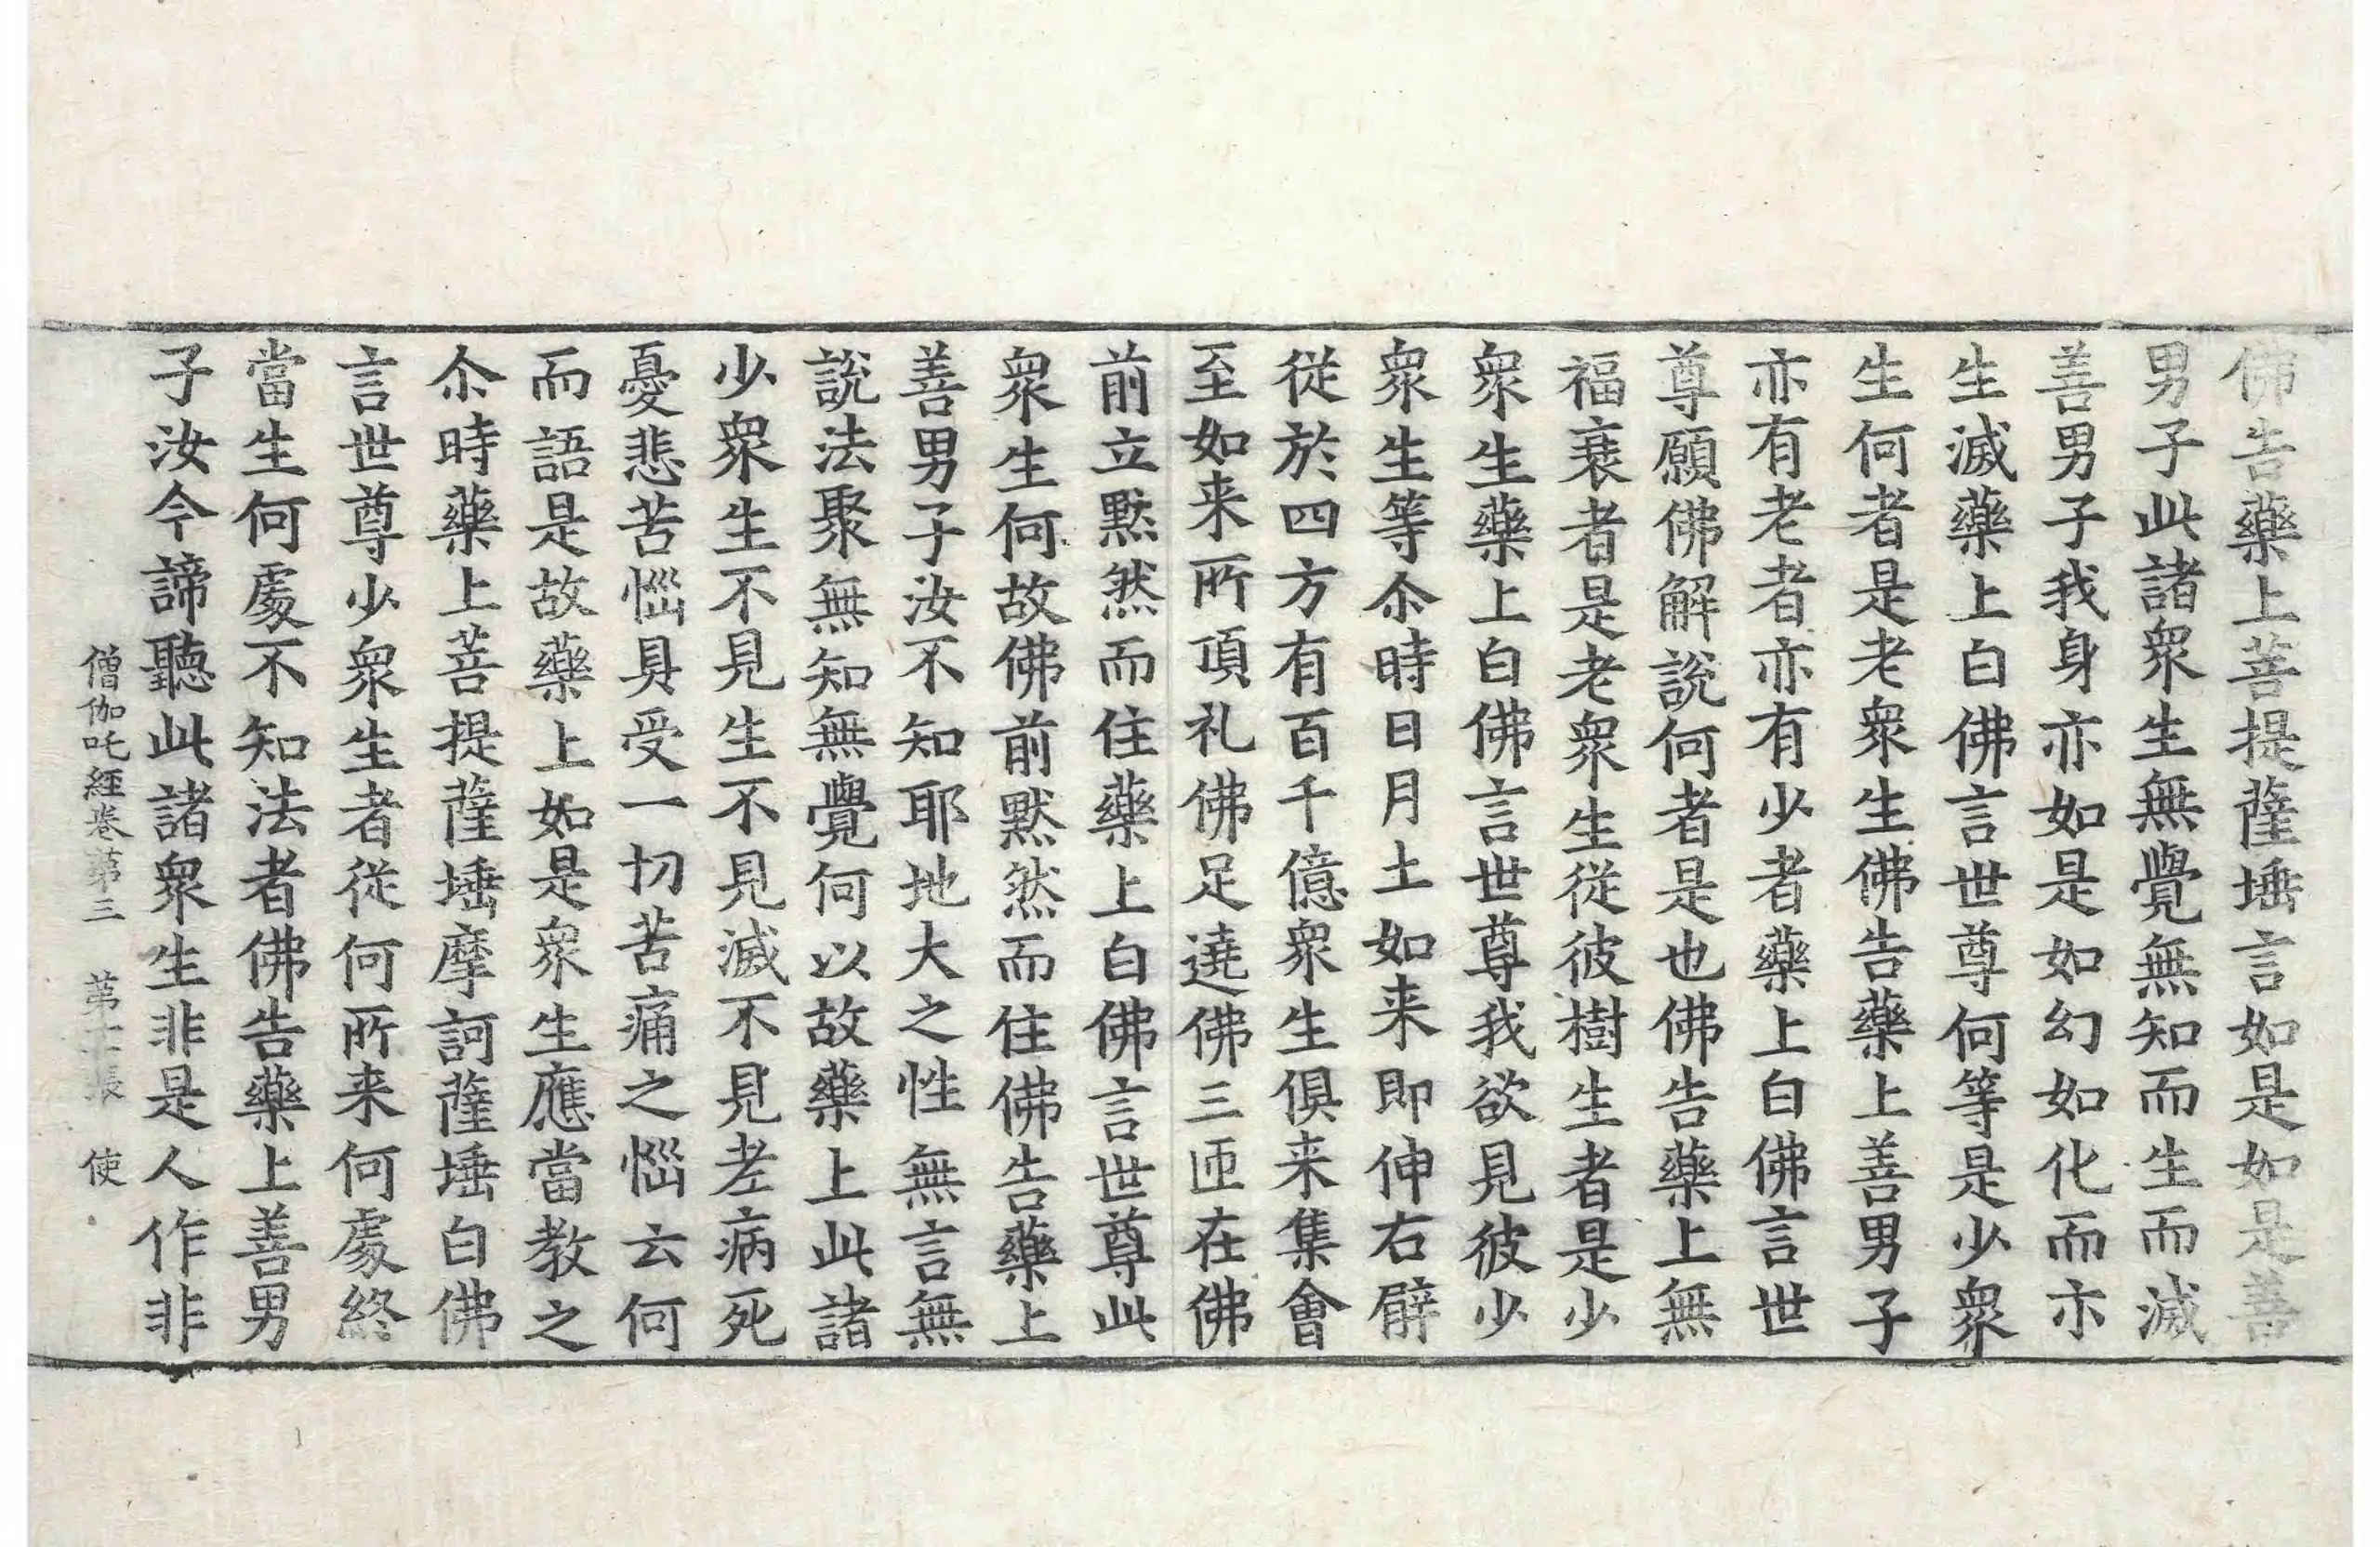 佛告藥上菩提薩埵言如是如是善
男子此諸衆生無覺無知而生而滅
善男子我身亦如是如幻如化而亦
生滅藥上白佛言世尊何等是少衆
生何者是老衆生佛告藥上善男子
亦有老者亦有少者藥上白佛言世
尊願佛解說何者是也佛告藥上無
福衰者是老衆生從彼樹生者是少
衆生藥上白佛言世尊我欲見彼少
衆生等尒時日月土如来即伸右臂
從於四方有百千億衆生俱来集會
至如来所頂礼佛足遶佛三匝在佛
前立黙然而住藥上白佛言世尊此
衆生何故佛前黙然而住佛告藥上
善男子汝不知耶地大之性無言無
說法聚無知無覺何以故藥上此諸
少衆生不見生不見滅不見老病死
憂悲苦惱具受一切苦痛之惱云何
而語是故藥上如是衆生應當教之
尒時藥上菩提薩埵摩訶薩埵白佛
言世尊少衆生者從何所来何處終
當生何處不知法者佛告藥上善男
子汝今諦聽此諸衆生非是人作非
僧伽吒經卷第三 第 張 使